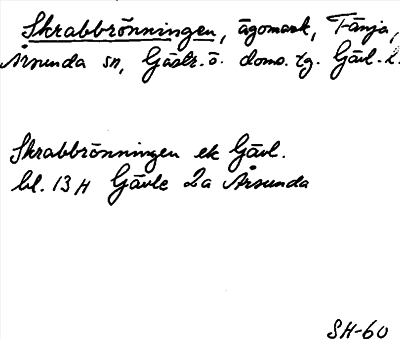 Skrabbrönningen, ägomark, Fänja,
Årsunda sn, Gästr. ö. doms. tg. Gävl. l.
Skrabbrönningen ek Gävl.
bl. 13 H Gävle 2a Årsunda
SH-60